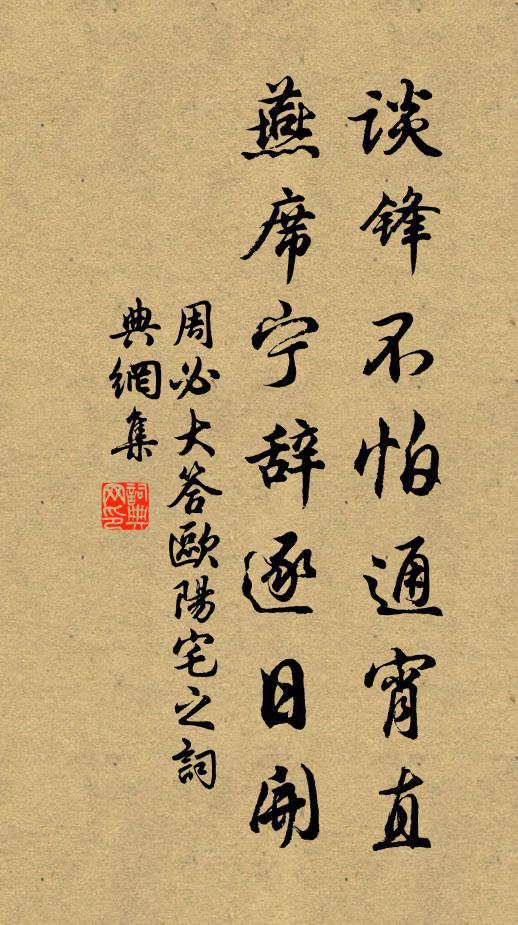 谈锋不怕通宵直
燕席宁辞逐日开
周必大答歐陽宅之詞
典網集
詞典网印